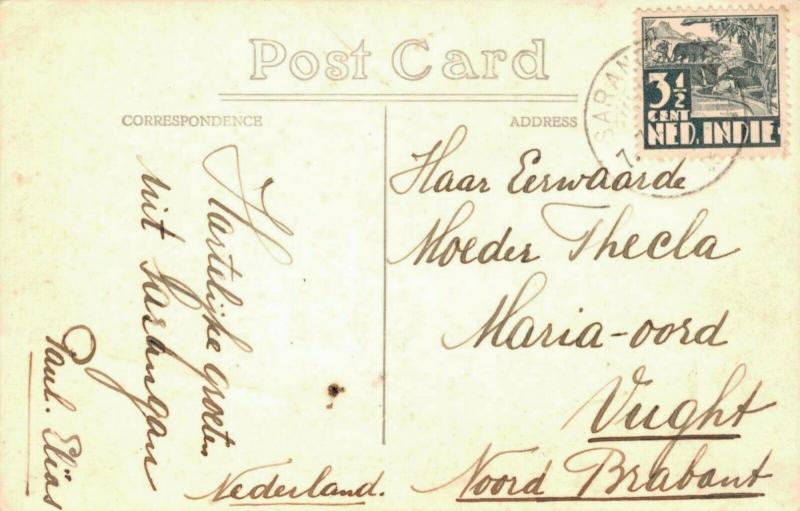 Post Card
CORRESPONDENCE
ADDRESS
3 1/2
CENT
NED. INDIE
SARAN
7.
Haar Eerwaarde
Moeder Thecla
Maria-oord
Vught
Noord Brabant
Nederland.
Hartelijke groeten
uit Sarangan
Paul. Elias